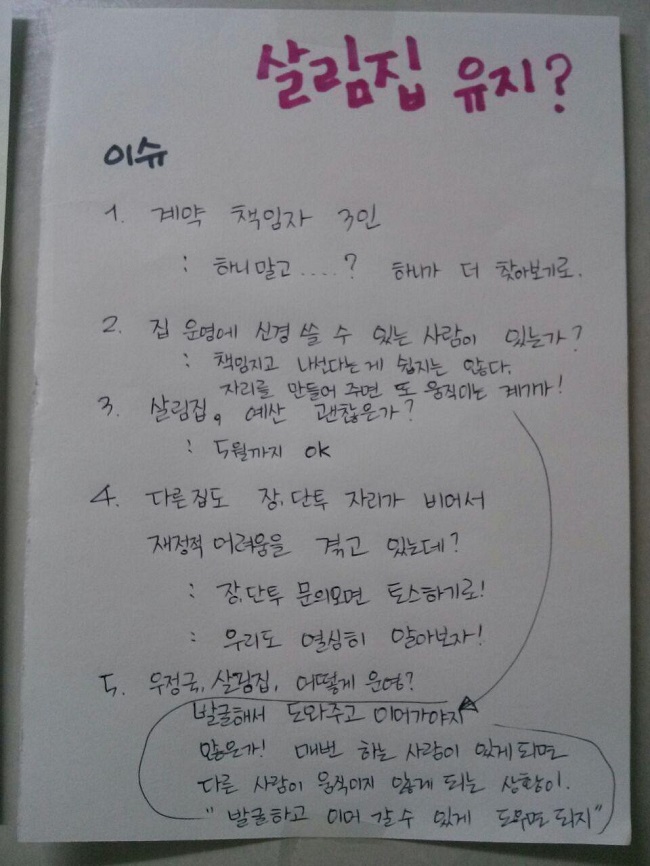 살림집 유지?
이슈
1. 계약 책임자 3인
: 하니말고.....? 하니가 더 찾아보기로.
2. 집 운영에 신경 쓸 수 있는 사람이 있는가?
: 책임지고 나선다는게 쉽지는 않다.
자리를 만들어 주면 또 움직이는 계기가!
3. 살림집, 예산 괜찮은가?
: 5월까지 OK
4. 다른집도 장,단투 자리가 비어서
재정적 어려움을 겪고 있는데?
: 장,단투 문의오면 토스하기로!
: 우리도 열심히 알아보자!
5. 우정국, 살림집, 어떻게 운영?
발굴해서 도와주고 이어가야지
않은가! 매번 하는 사람이 있게되면
다른 사람이 움직이지 않게 되는 상황이.
"발굴하고 이어 갈 수 있게 도우면 되지"